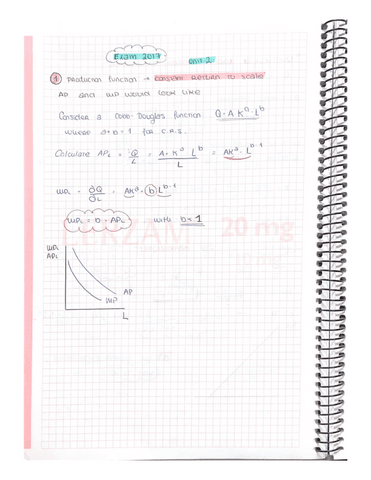 Exam 2017 unit 2
1 Production function → constant return to scale
AP and MP would look like
Consider a Cobb-Douglas function Q = A K^a L^b
where a+b = 1 for C.R.S.
Calculate APL = Q/L = A·K^a·L^b/L = AK^a·L^b-1
MPL = ∂Q/∂L = AK^a·(b)L^b-1
MPL = b · APL with b<1
MPL
APL
AP
MP
L
ERZAM 20 mg